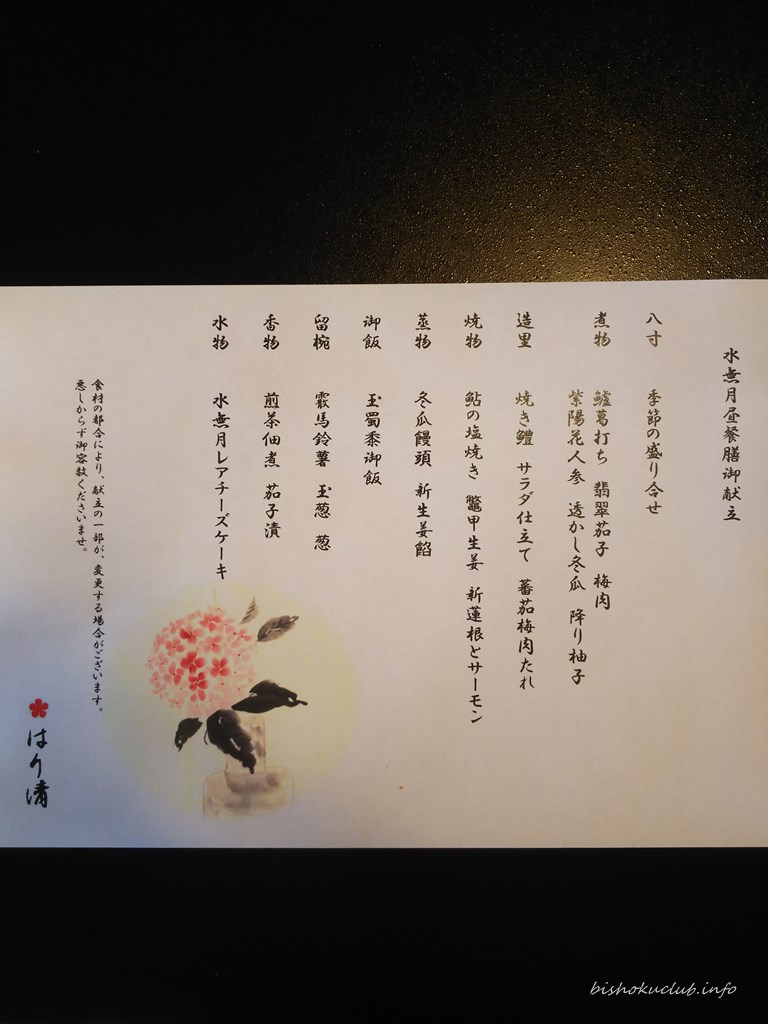 水無月昼餐膳御献立
八寸　季節の盛り合せ
煮物　鱸葛打ち　翡翠茄子　梅肉
紫陽花人参　透かし冬瓜　降り柚子
造里　焼き鱧　サラダ仕立て　蕃茄梅肉たれ
焼物　鮎の塩焼き　鼈甲生姜　新蓮根とサーモン
蒸物　冬瓜饅頭　新生姜餡
御飯　玉蜀黍御飯
留椀　霰馬鈴薯　玉葱　葱
香物　煎茶佃煮　茄子漬
水物　水無月レアチーズケーキ
食材の都合により、献立の一部が、変更する場合がございます。
悪しからず御容赦くださいませ。
はり清
bishokuclub.info